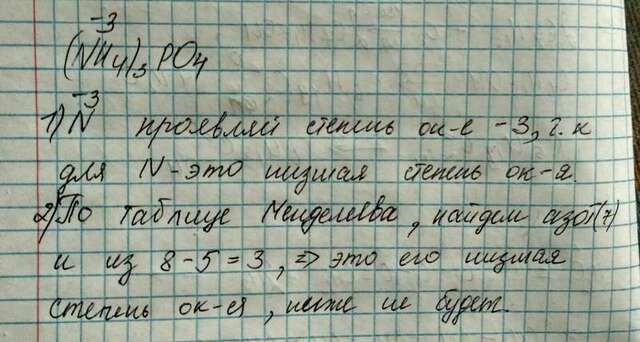 -3
(NH4)3 PO4
-3
1) N проявляй степень ок-е -3, т.к
для N - это низшая степень ок-я.
2) По таблице Менделеева, найдем азот (7)
и из 8 - 5 = 3, => это его низшая
степень ок-ея, ниже не будет.